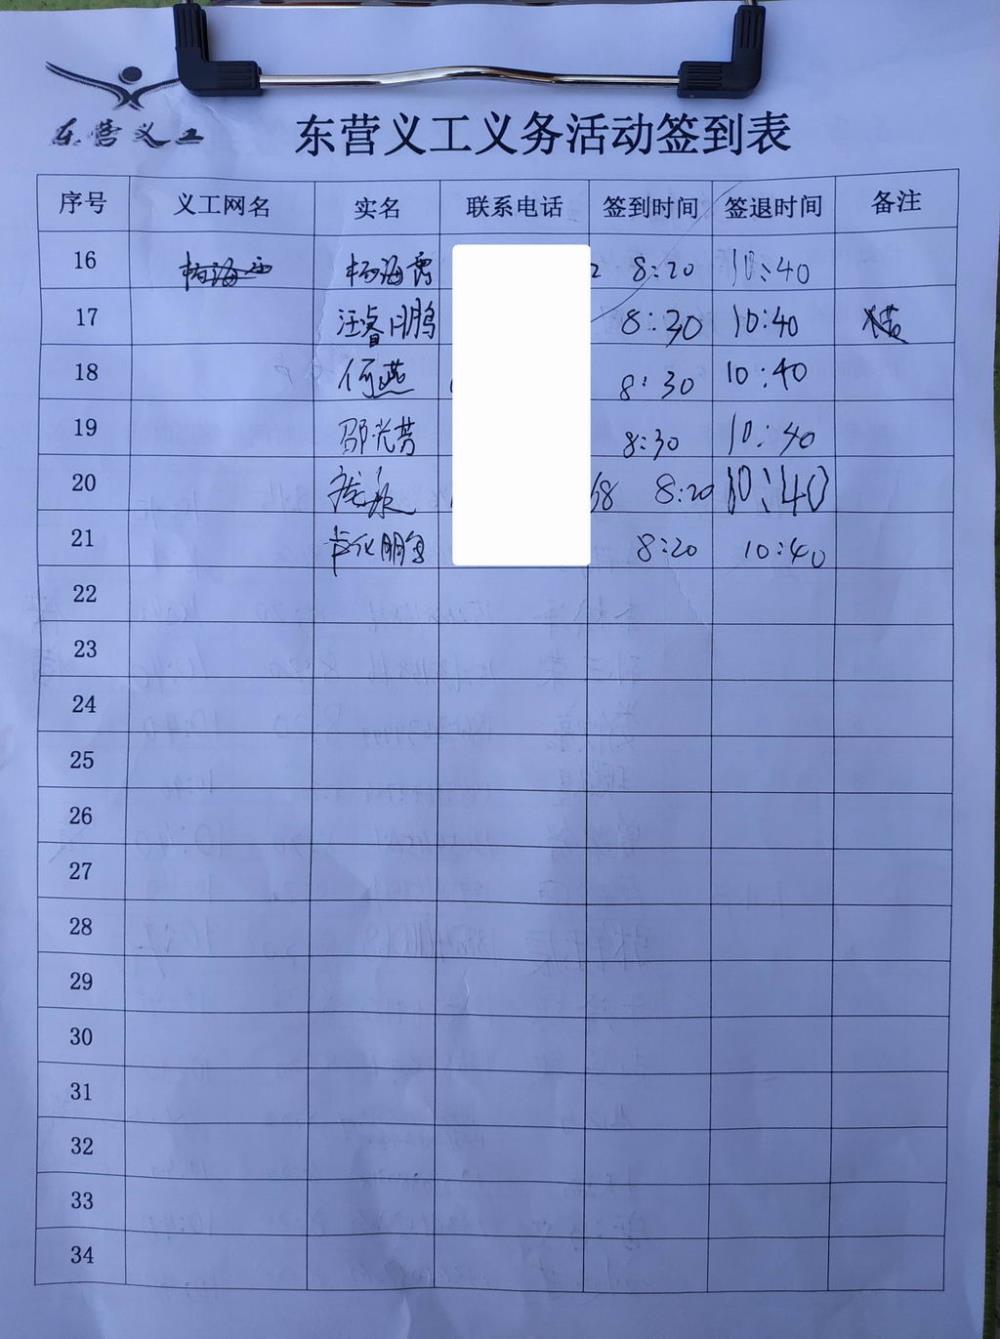 东营义工
东营义工义务活动签到表
序号 义工网名 实名 联系电话 签到时间 签退时间 备注
16 杨海 杨海霞 2 8:20 10:40
17 汪睿 鹏 8:30 10:40
18 何燕 8:30 10:40
19 邵光芳 8:30 10:40
20 68 8:20 10:40
21 卢化鹏 8:20 10:40
22
23
24
25
26
27
28
29
30
31
32
33
34